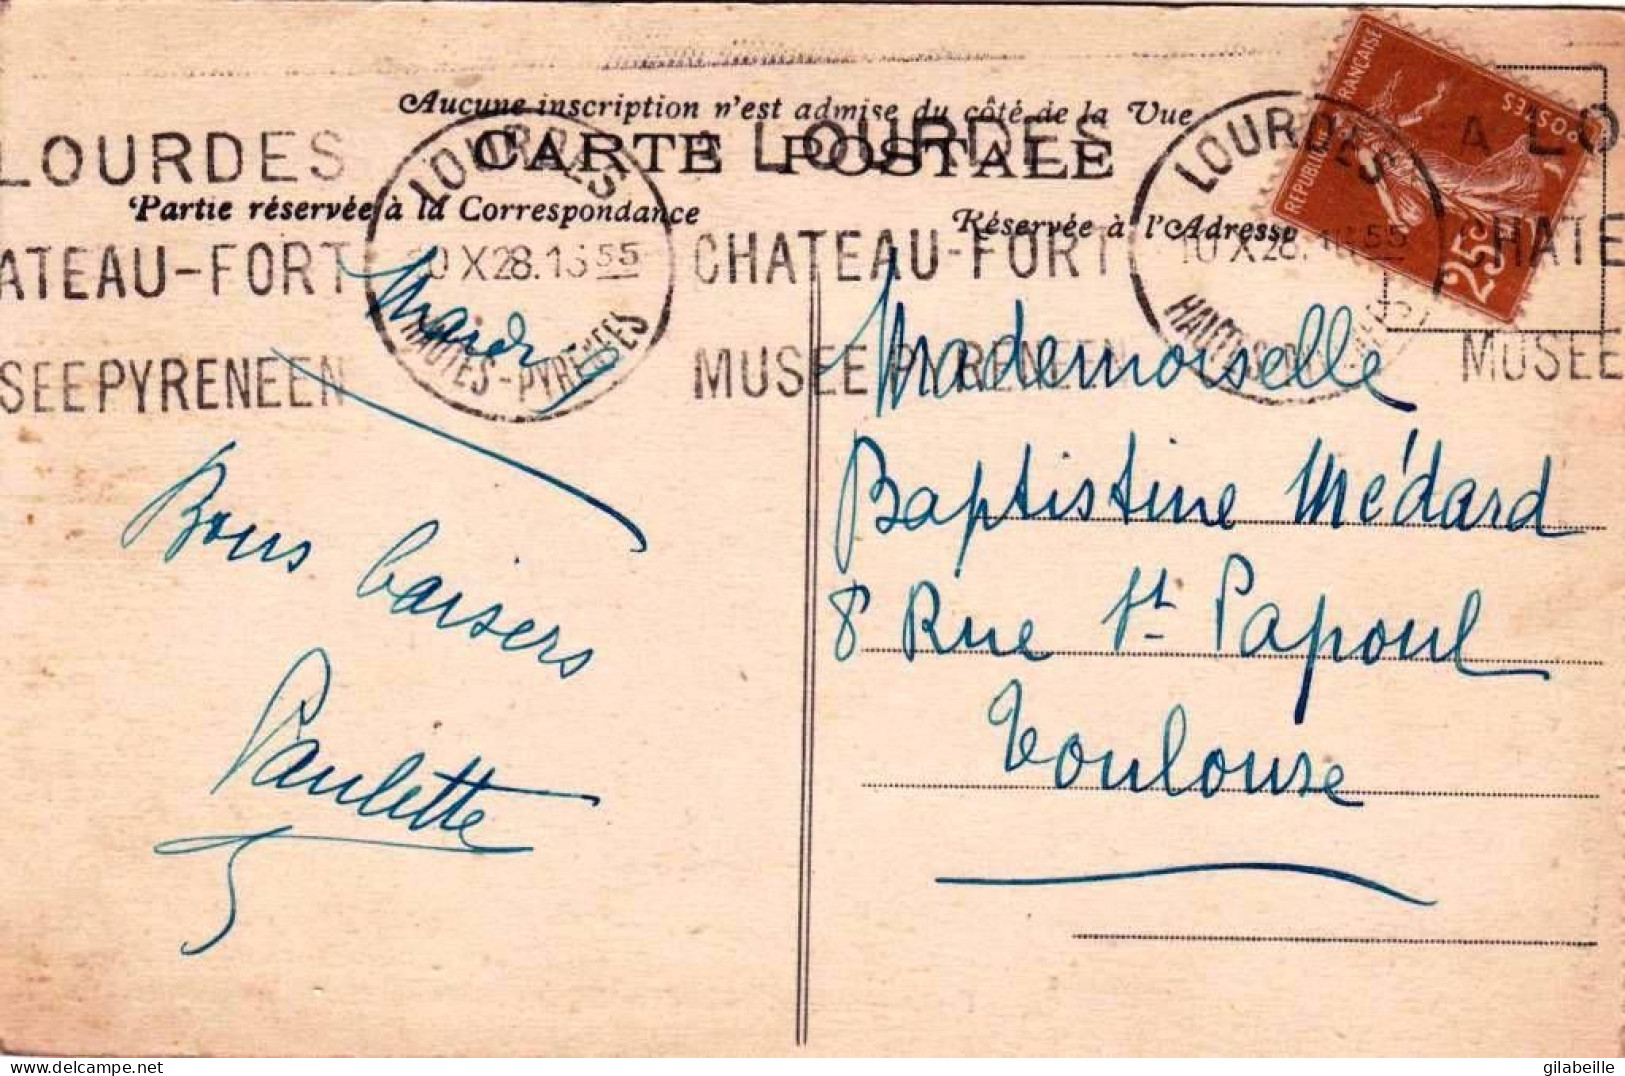 Aucune inscription n'est admise du côté de la Vue
CARTE POSTALE
Partie réservée à la Correspondance
Réservée à l'Adresse
LOURDES
ATEAU-FORT
SEE PYRENEEN
LOURDES
10 X 28. 55
HAUTES-PYRENEES
A LOURDES
CHATEAU-FORT
MUSEE PYRENEEN
LOURDES
10 X 28. 55
A LO
HATE
MUSEE
REPUBLIQUE FRANCAISE
POSTES
25c
Mardi
Bons baisers
Paulette
Mademoiselle
Baptistine Médard
8 Rue St Papoul
Toulouse
gilabeille